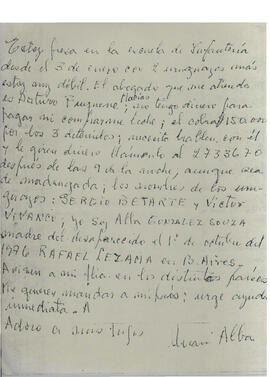 Estoy presa en la escuela de Infantería
desde el 3 de enero con 2 uruguayos más
estoy muy débil. El abogado que me atiende
es Arturo                ; no tengo dinero para
pagar ni comprarme leche; el cobra $150.000
por los 3 detenidos; necesito hablen con él
y le giren dinero llamando al 2733670
después de las 9 de la noche, aunque sea
de madrugada; los nombres de los uru-
guayos: SERGIO BETARTE y VICTOR
VIVANCO; yo soy Alba GONZALEZ SOUZA
madre del desaparecido el 1° de octubre del
1976 RAFAEL LEZAMA en B. Aires.
Avisen a mi flia. en los distintos países
Me quieren mandar a mi país; urge ayuda
inmediata. A
Adoro a mis hijos
Alba